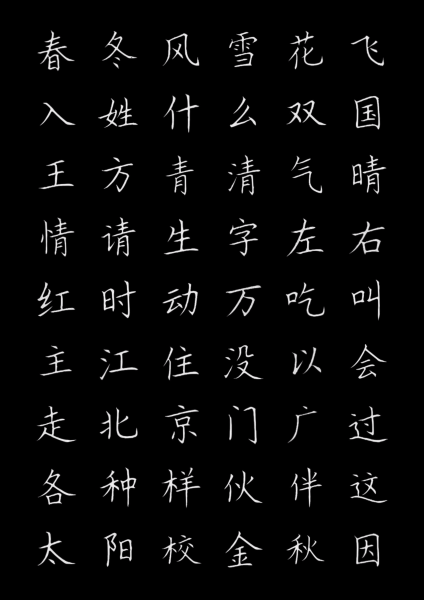 春冬风雪花飞
入姓什么双国
王方青清气晴
情请生字左右
红时动万吃叫
主江住没以会
走北京门广过
各种样伙伴这
太阳校金秋因